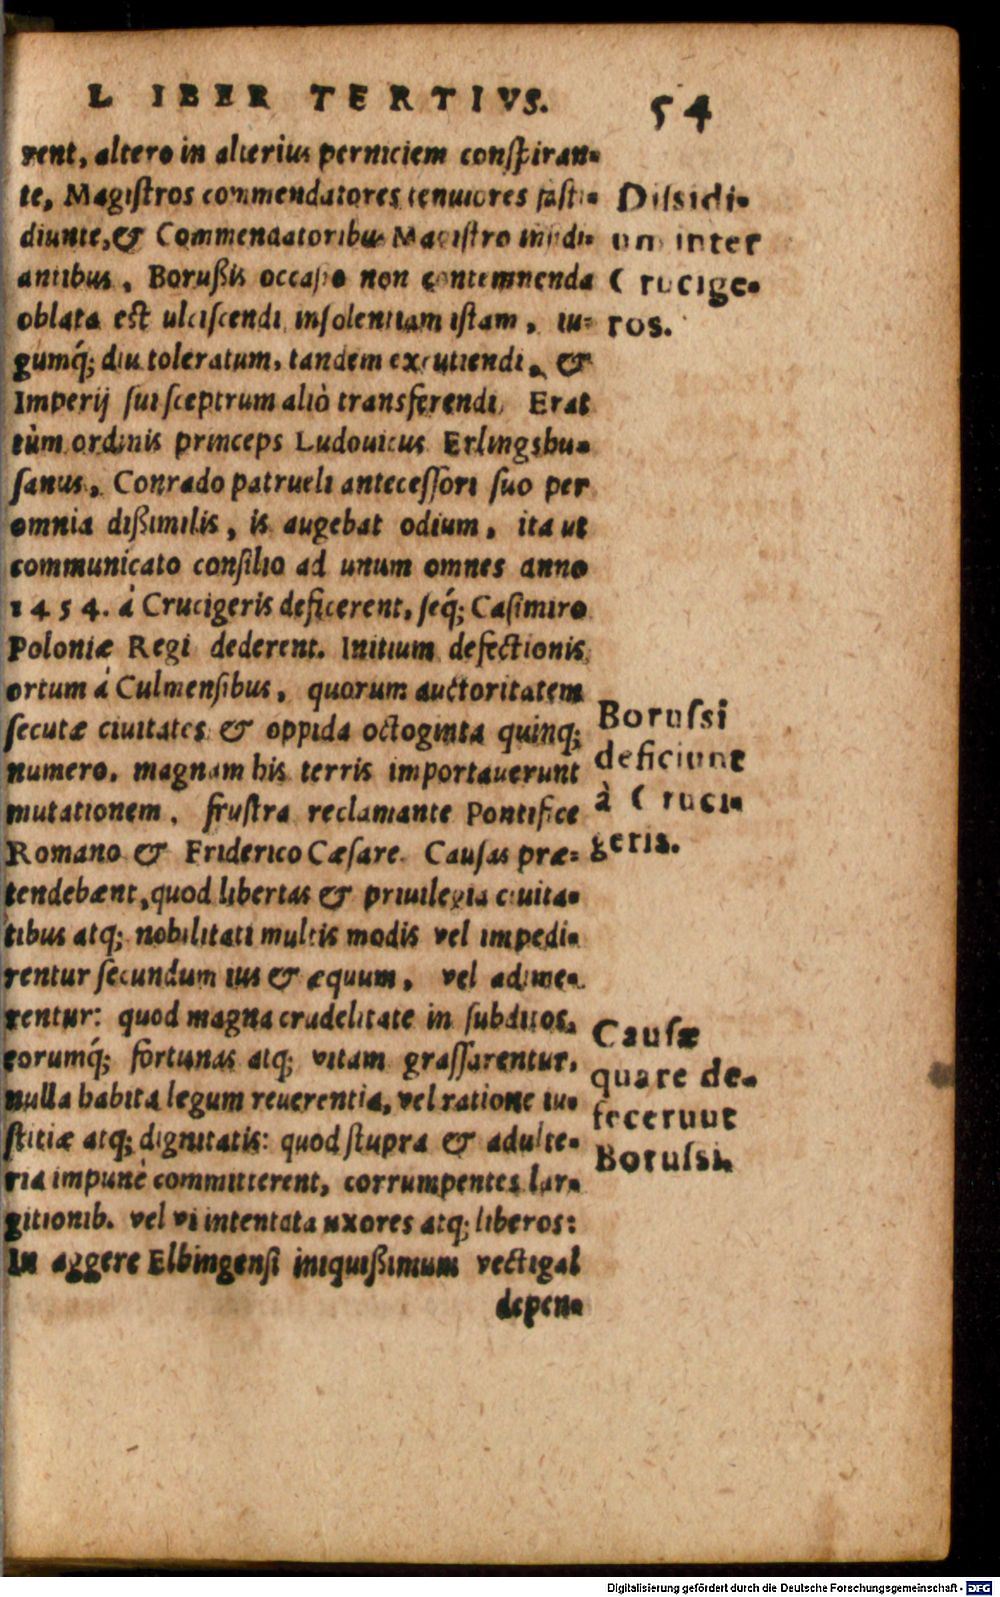 LIBER TERTIVS. 54
rent, altero in alterius perniciem conſpiran-
te, Magiſtros commendatores tenuiores faſti-
diunte, & Commendatoribus Magiſtro inſidi-
antibus, Borußis occaſio non contemnenda
oblata eſt ulciſcendi inſolentiam iſtam, iu-
gumq́; diu toleratum, tandem excutiendi, &
Imperij ſui ſceptrum aliò transferendi. Erat
tùm ordinis princeps Ludouicus Erlingsbu-
ſanus, Conrado patrueli anteceſſori ſuo per
omnia dißimilis, is augebat odium, ita ut
communicato conſilio ad unum omnes anno
1454. á Crucigeris deficerent, ſeq́; Caſimiro
Poloniæ Regi dederent. Initium defectionis
ortum á Culmenſibus, quorum auctoritatem
ſecutæ ciuitates & oppida octoginta quinq;
numero, magnam his terris importauerunt
mutationem, fruſtra reclamante Pontifice
Romano & Friderico Cæſare. Cauſas præ-
tendebænt, quod libertas & priuilegia ciuita-
tibus atq; nobilitati multis modis vel impedi-
rentur ſecundum ius & æquum, vel adime-
rentur: quod magna crudelitate in ſubditos,
eorumq́; fortunas atq; vitam graſſarentur,
nulla habita legum reuerentia, vel ratione iu-
ſtitiæ atq; dignitatis: quod ſtupra & adulte-
ria impunè committerent, corrumpentes lar-
gitionib. vel vi intentata uxores atq; liberos:
In aggere Elbingenſi iniquißimum vectigal
depen-
Diſsidi-
um inter
Crucige-
ros.
Boruſsi
deficiunt
à Cruci-
geris.
Cauſæ
quare de-
fecerunt
Boruſsi.
Digitalisierung gefördert durch die Deutsche Forschungsgemeinschaft - DFG